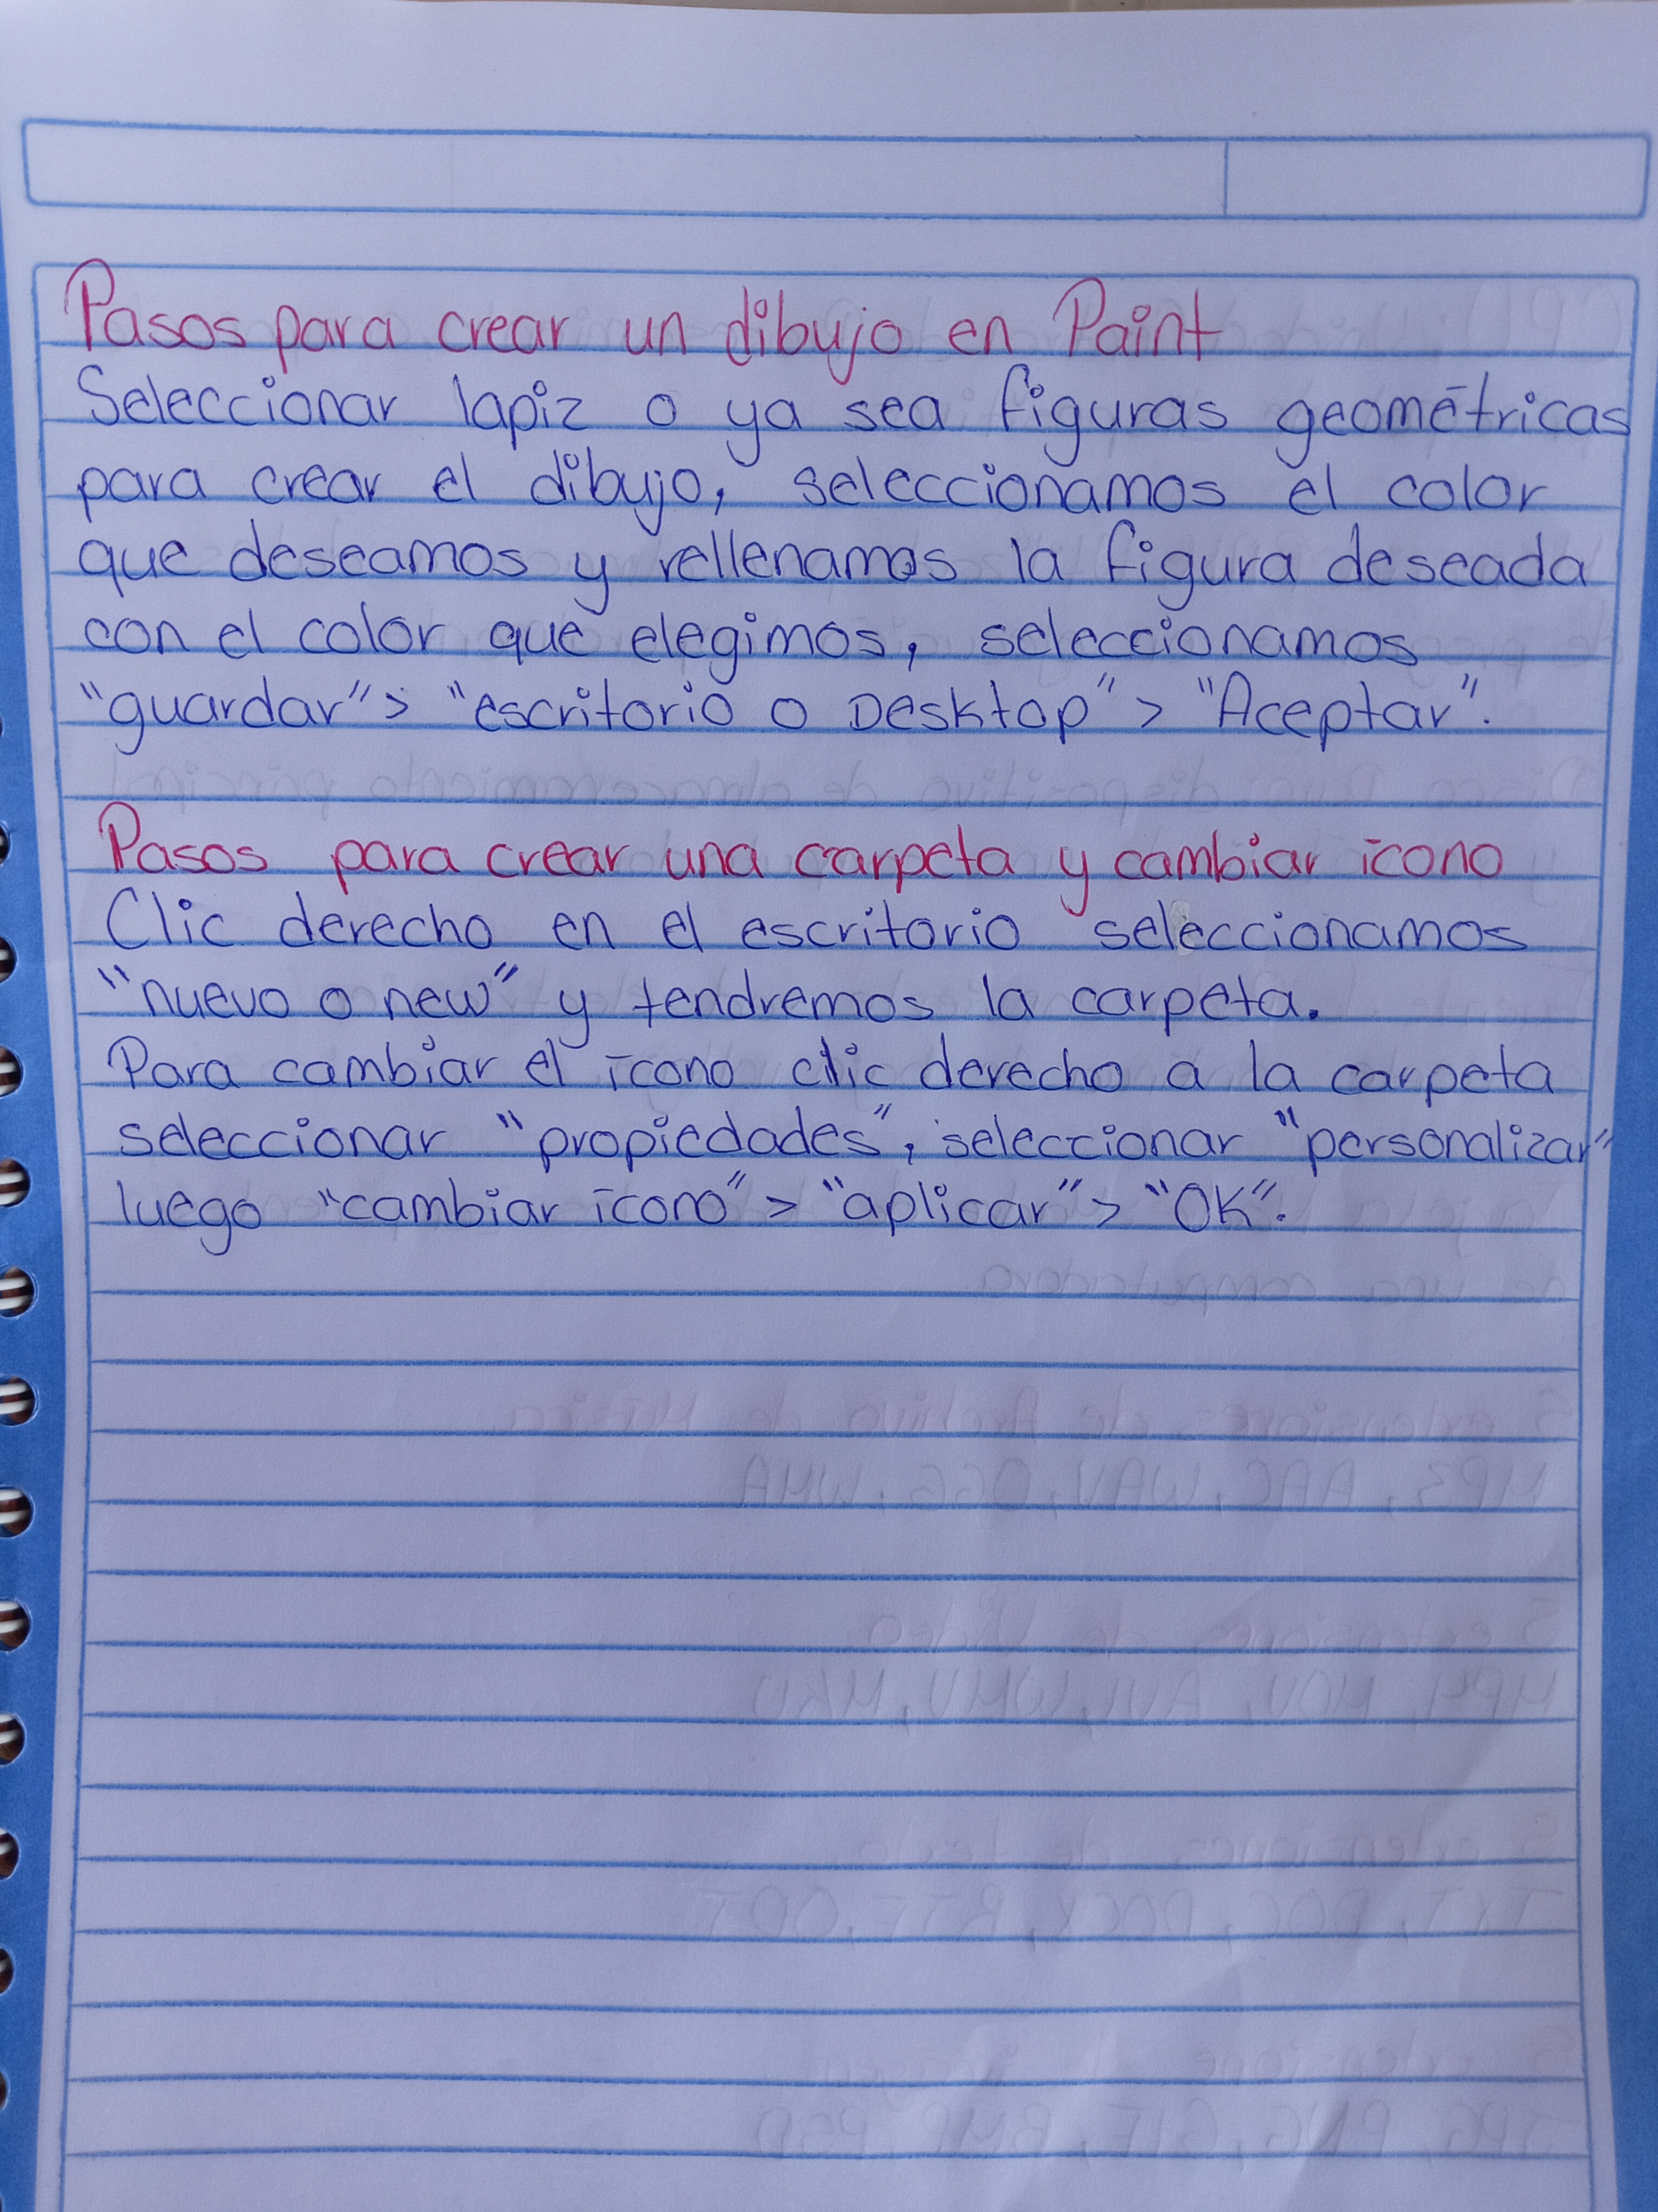 Pasos para crear un dibujo en Paint
Seleccionar lapiz o ya sea figuras geométricas
para crear el dibujo, seleccionamos el color
que deseamos y rellenamos la figura deseada
con el color que elegimos, seleccionamos
"guardar" > "escritorio o Desktop" > "Aceptar".
Pasos para crear una carpeta y cambiar icono
Clic derecho en el escritorio seleccionamos
"nuevo o new" y tendremos la carpeta.
Para cambiar el icono clic derecho a la carpeta
seleccionar "propiedades", seleccionar "personalizar"
luego "cambiar icono" > "aplicar" > "OK".